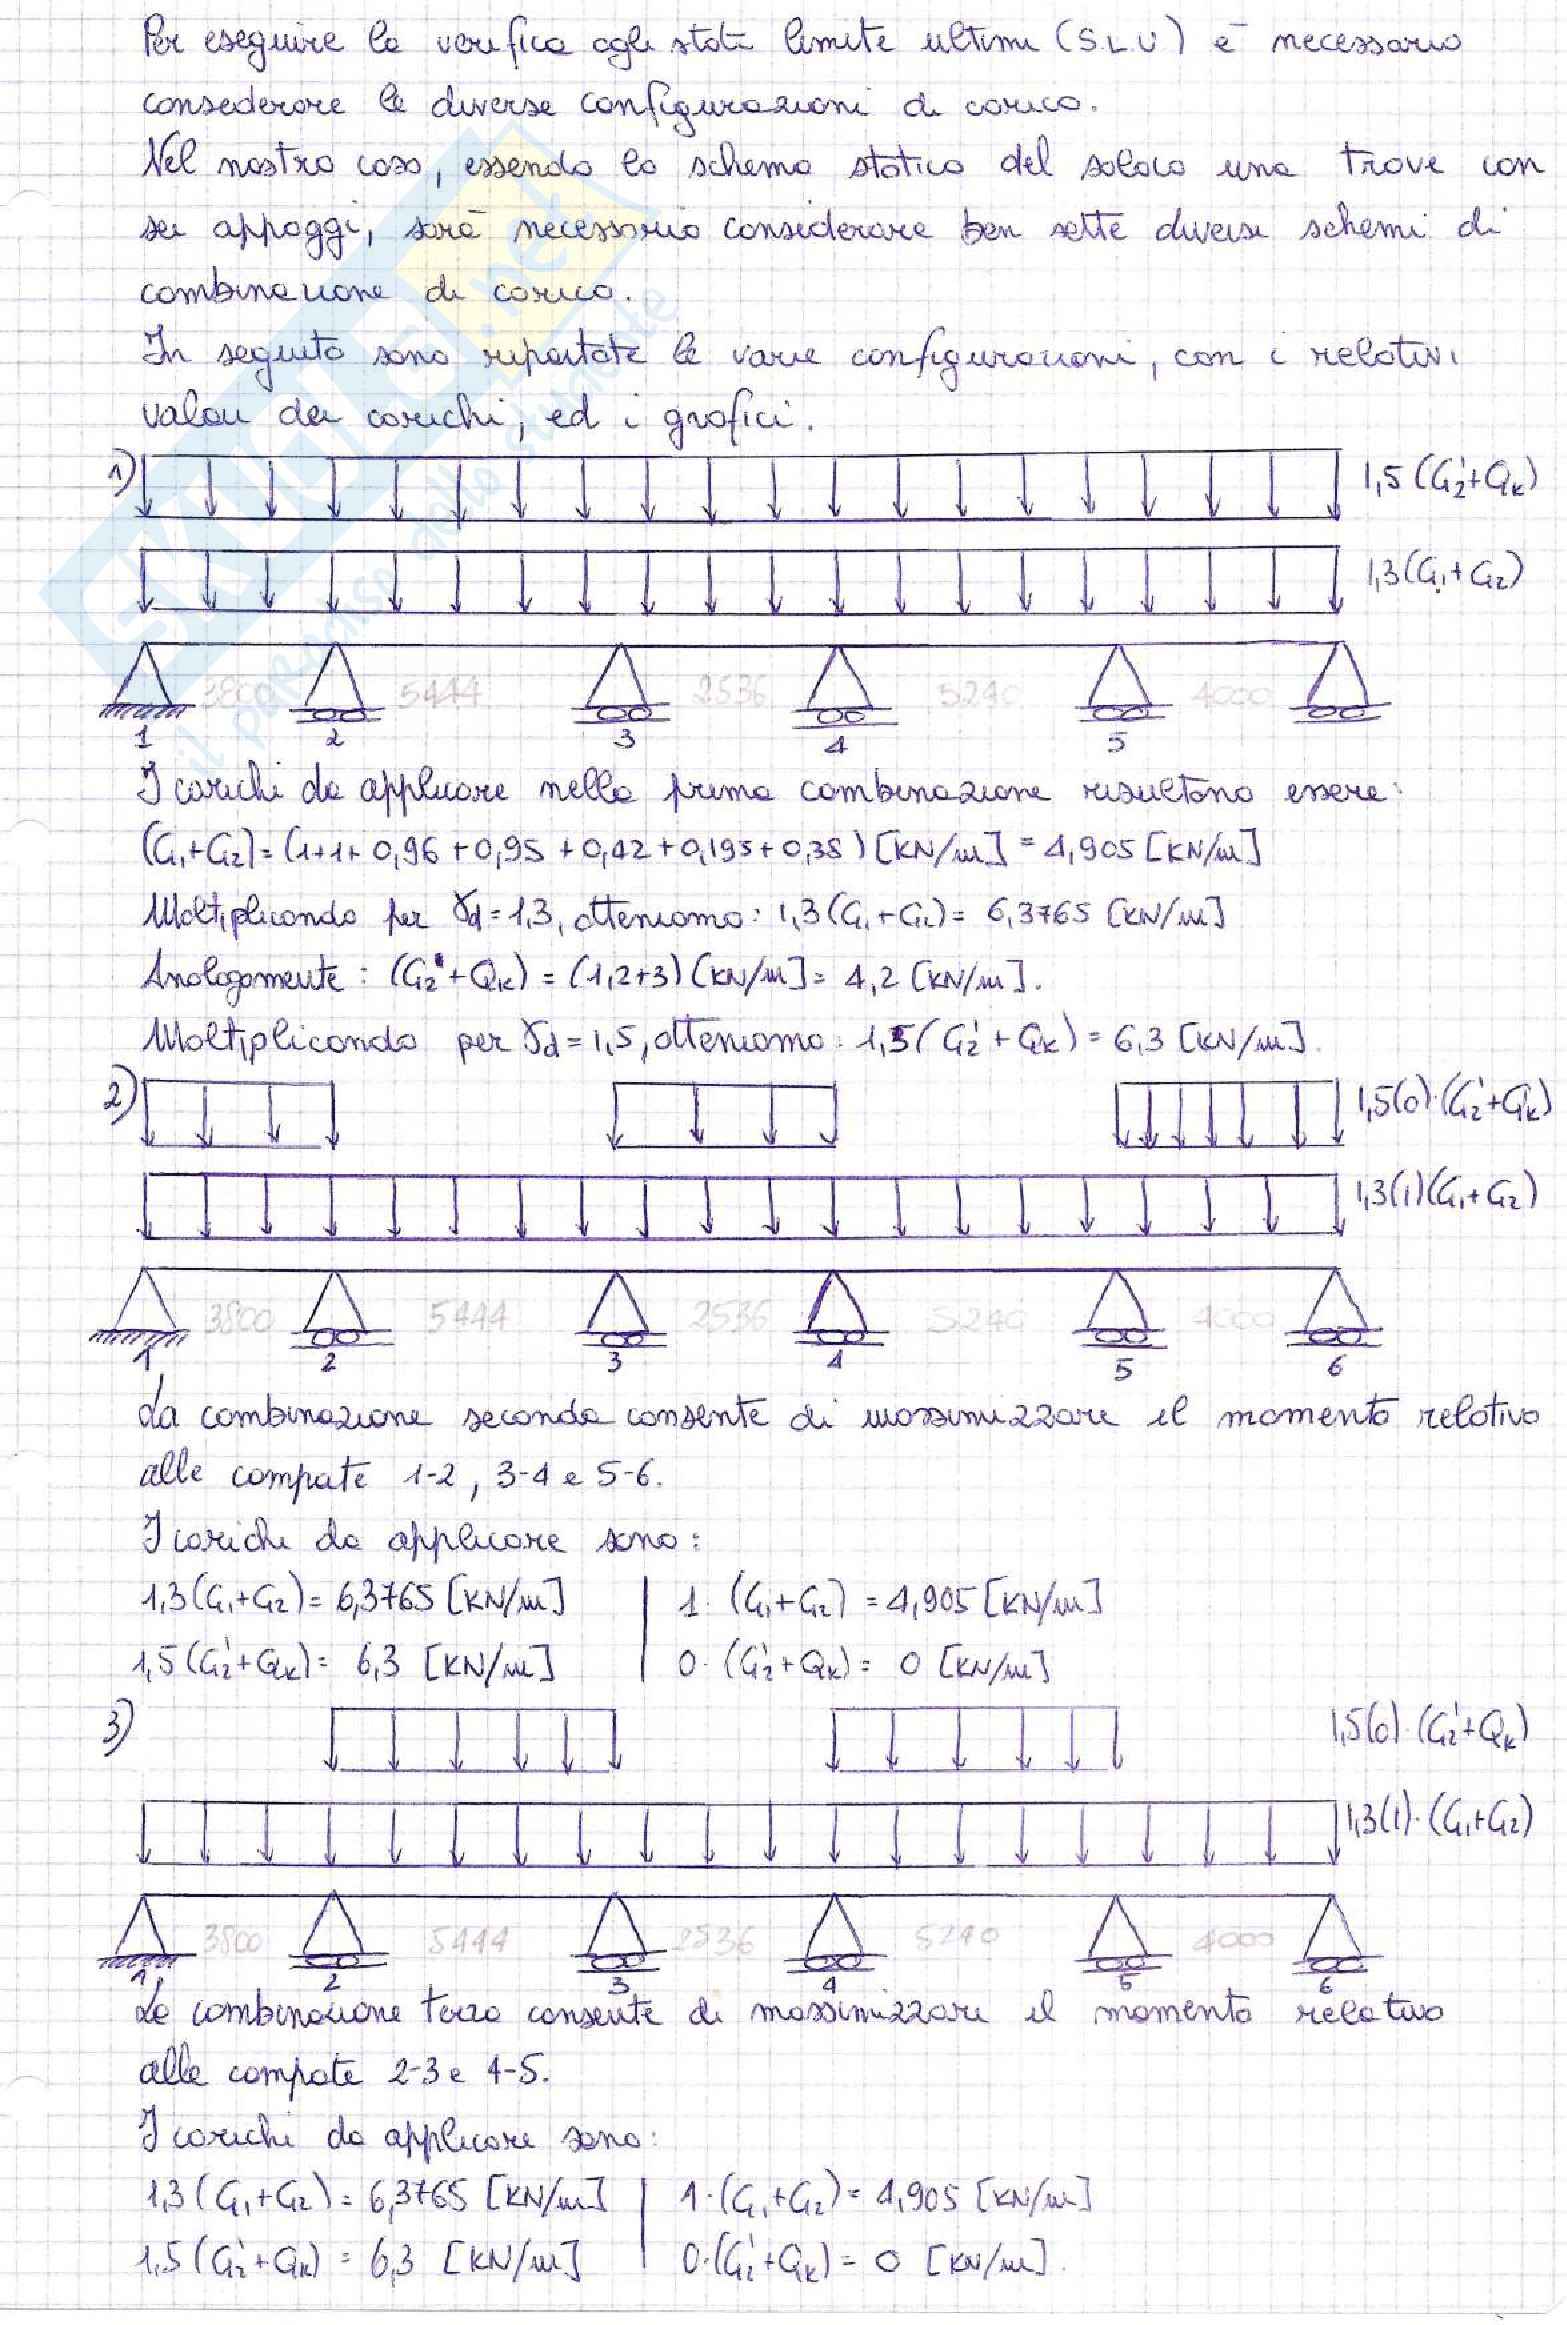 Per eseguire la verifica agli stati limite ultimi (S.L.U) è necessario
considerare le diverse configurazioni di carico.
Nel nostro caso, essendo lo schema statico del solaio una trave con
sei appoggi, sarà necessario considerare ben sette diversi schemi di
combinazione di carico.
In seguito sono riportate le varie configurazioni, con i relativi
valori dei carichi, ed i grafici.
1) 1,5(G₂'+Qₖ)
1,3(G₁+G₂)
3800 5444 2536 5240 4000
1 2 3 4 5
I carichi da applicare nella prima combinazione risultano essere:
(G₁+G₂)=(1+1+0,96+0,95+0,42+0,195+0,38)[KN/m]=4,905[KN/m]
Moltiplicando per γd=1,3, otteniamo: 1,3(G₁+G₂)= 6,3765 [KN/m]
Analogamente: (G₂'+Qₖ)=(1,2+3)[KN/m]= 4,2 [KN/m].
Moltiplicando per γd=1,5, otteniamo: 1,5(G₂'+Qₖ)= 6,3 [KN/m].
2) 1,5(0)·(G₂'+Qₖ)
1,3(1)(G₁+G₂)
3800 5444 2536 5240 4000
1 2 3 4 5 6
La combinazione seconda consente di massimizzare il momento relativo
alle campate 1-2, 3-4 e 5-6.
I carichi da applicare sono:
1,3(G₁+G₂)= 6,3765 [KN/m] | 1·(G₁+G₂)=4,905 [KN/m]
1,5(G₂'+Qₖ)= 6,3 [KN/m] | 0·(G₂'+Qₖ)= 0 [KN/m]
3) 1,5(0)·(G₂'+Qₖ)
1,3(1)·(G₁+G₂)
3800 5444 2536 5240 4000
1 2 3 4 5 6
La combinazione terza consente di massimizzare il momento relativo
alle campate 2-3 e 4-5.
I carichi da applicare sono:
1,3(G₁+G₂)= 6,3765 [KN/m] | 1·(G₁+G₂)= 4,905 [KN/m]
1,5(G₂'+Qₖ)= 6,3 [KN/m] | 0·(G₂'+Qₖ)= 0 [KN/m].
SKUOLA.net
il paradiso dello studente